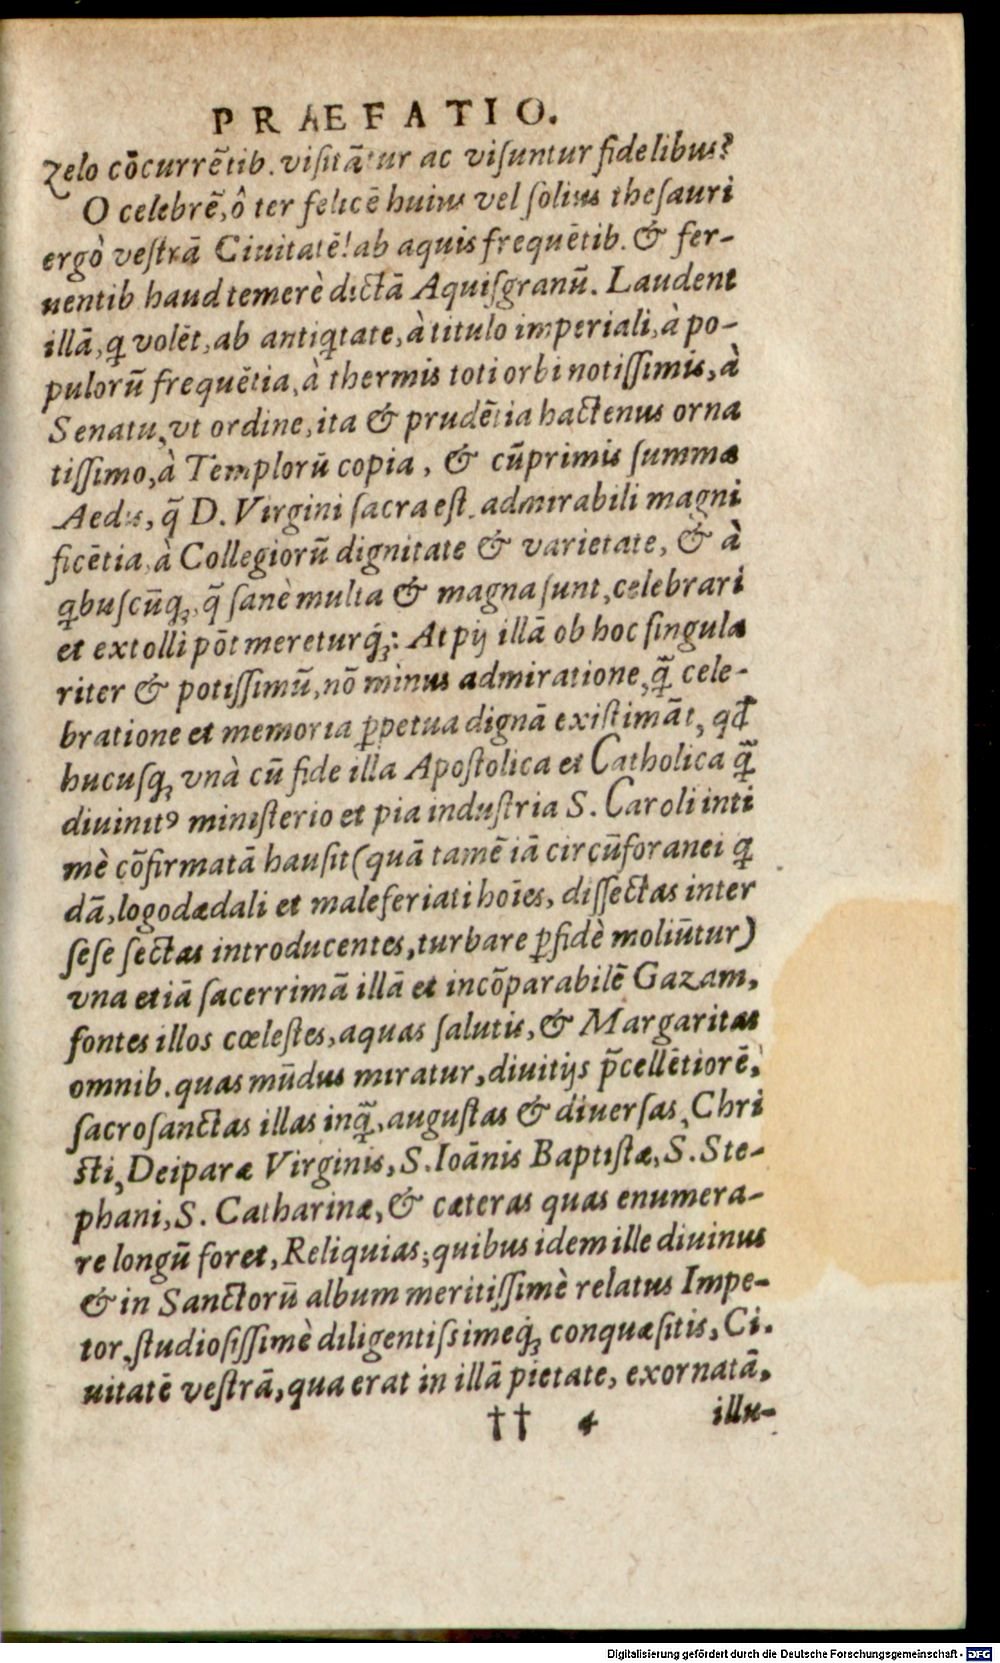 PRAEFATIO.
zelo cōcurrētib. visitātur ac visuntur fidelibus?
O celebrē, ô ter felicē huius vel solius thesauri
ergò vestrā Ciuitatē! ab aquis frequētib. & fer-
uentib haud temerè dictā Aquisgranū. Laudent
illā, q volēt, ab antiqtate, à titulo imperiali, à po-
pulorū frequētia, à thermis toti orbi notissimis, à
Senatu, vt ordine, ita & prudētia hactenus orna
tissimo, à Templorū copia, & cūprimis summæ
Aedis, q̃ D. Virgini sacra est, admirabili magni
ficētia, à Collegiorū dignitate & varietate, & à
qbuscūq;, q̃ sanè multa & magna sunt, celebrari
et extolli pōt mereturq́;: At pij illā ob hoc singula
riter & potissimū, nō minus admiratione, q̃ cele-
bratione et memoria ꝑpetua dignā existimāt, qđ
hucusq; vnà cū fide illa Apostolica et Catholica q̃
diuinitꝰ ministerio et pia industria S. Caroli inti
mè cōfirmatā hausit (quā tamē iā circūforanei q
dā, logodædali et maleferiati hoīes, dissectas inter
sese sectas introducentes, turbare ꝑfidè moliūtur)
vna etiā sacerrimā illā et incōparabilē Gazam,
fontes illos cœlestes, aquas salutis, & Margaritas
omnib. quas mūdus miratur, diuitijs p̄cellētiorē,
sacrosanctas illas inq̃, augustas & diuersas, Chri
sti, Deiparæ Virginis, S. Ioānis Baptistæ, S. Ste-
phani, S. Catharinæ, & cæteras quas enumera-
re longū foret, Reliquias; quibus idem ille diuinus
& in Sanctorū album meritissimè relatus Impe-
tor, studiosissimè diligentissimeq́; conquæsitis, Ci.
uitatē vestrā, qua erat in illā pietate, exornatā,
†† 4 illu-
Digitalisierung gefördert durch die Deutsche Forschungsgemeinschaft - DFG